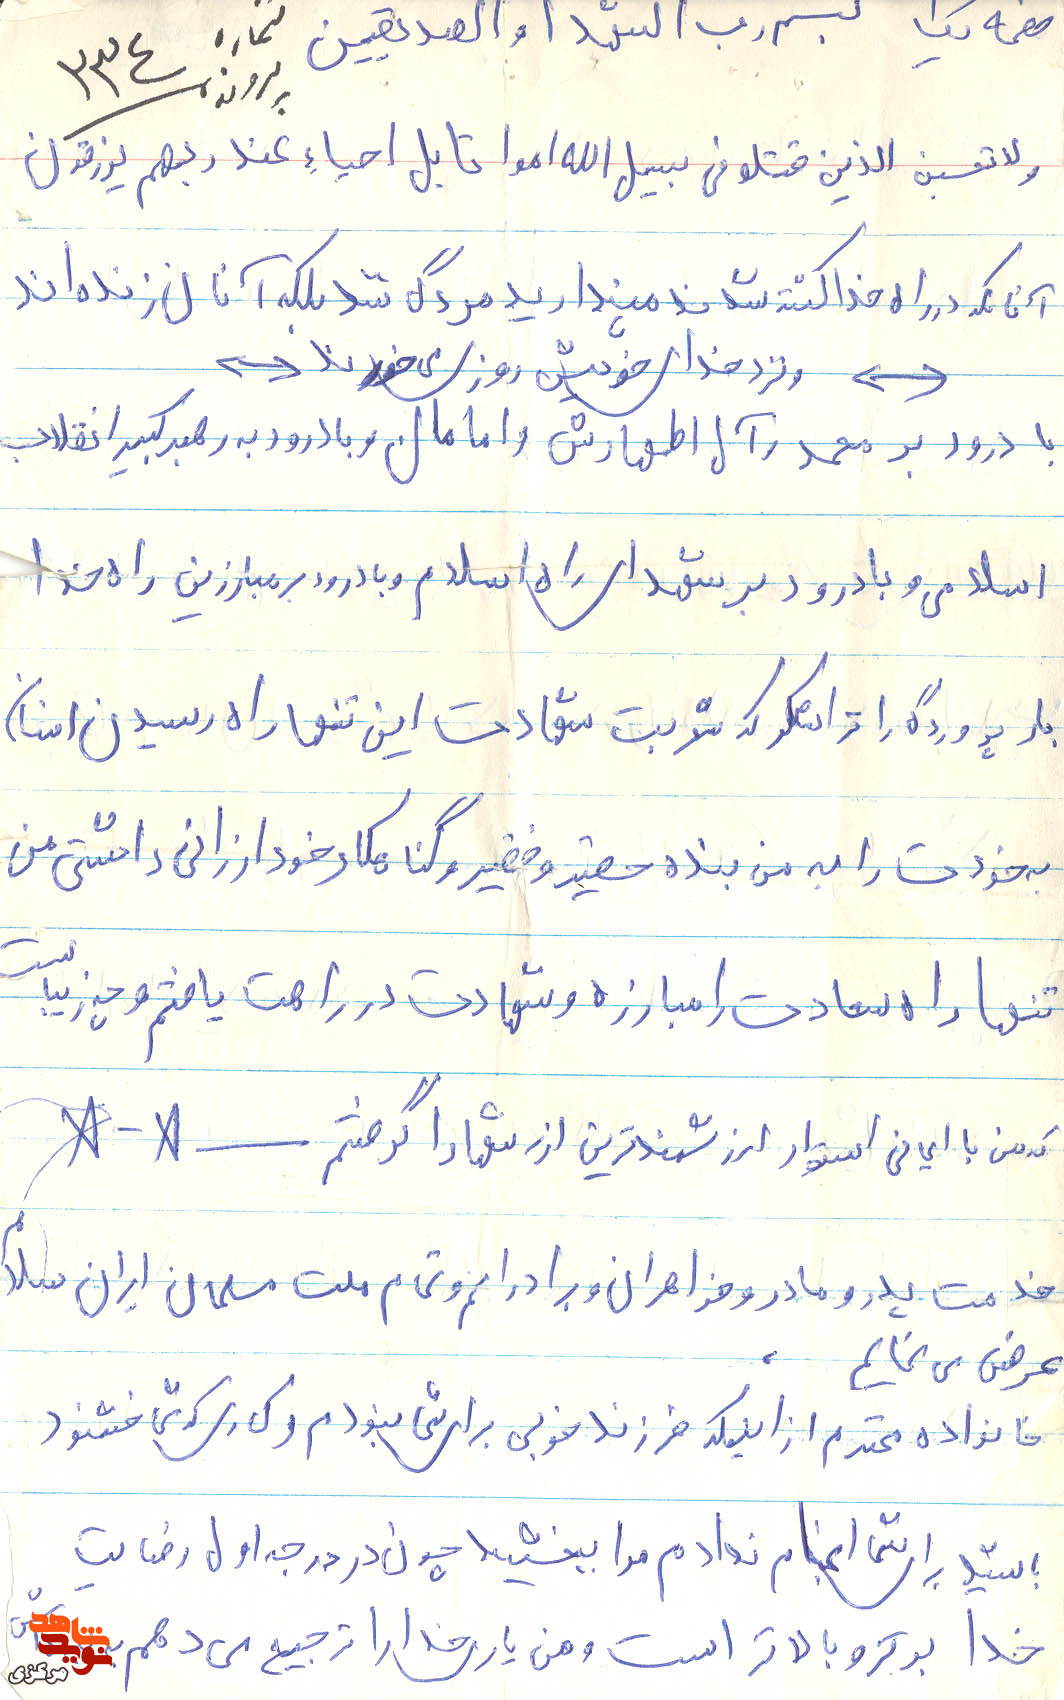 صفحه یک بسم رب الشهدا و الصدیقین
شماره پرونده ۲۳۴
ولا تحسبن الذین قتلو فی سبیل الله اموا تا بل احیاءِ عند ربهم یزرقون
آنانکه در راه خدا کشته شدند مپندارید مردگانند بلکه آنان زنده اند
و نزد خدای خویش روزی می خورند
با درود بر محمد و آل اطهارش و امامان و با درود به رهبر کبیر انقلاب
اسلامی و با درود بر شهدای راه اسلام و با درود بر مبارزین راه خدا
بار پروردگارا ترا شکر که شربت شهادت این تنها راه رسیدن انسان
به خودت را به من بنده حقیر و فقیر و گناهکار خود ارزانی داشتی من
تنها راه سعادت را مبارزه و شهادت در راهت یافتم و چه زیباست
که من با ایمانی استوار ارزشمندترین ارزشها را گرفتم
خدمت پدر و مادر و خواهران و برادرانم و تمام ملت مسلمان ایران سلام
عرض می نمایم
خانواده محترم از اینکه فرزند خوبی برای شما نبودم و کاری که شما خشنود
باشید برای شما انجام ندادم مرا ببخشید چون در درجه اول رضایت
خدا برتر و بالاتر است و من یاری خدا را ترجیح می دهم
نوید شاهد
مرکزی